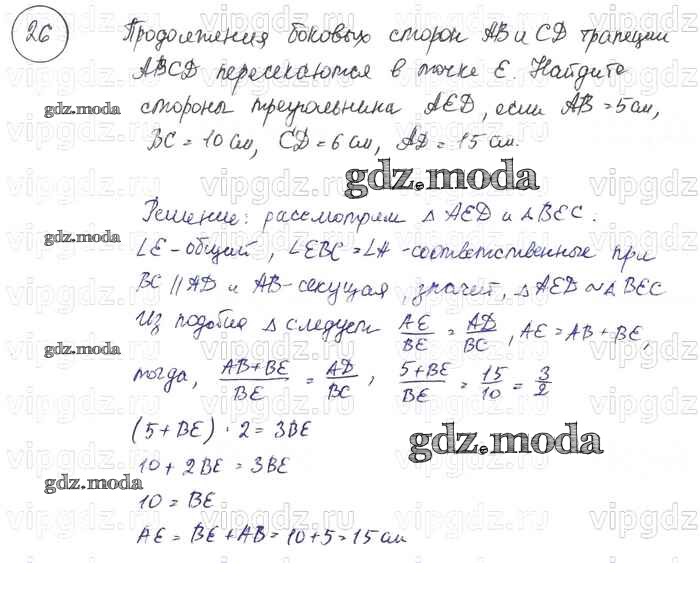 26 Продолжения боковых сторон AB и CD трапеции
ABCD пересекаются в точке E. Найдите
стороны треугольника AED, если AB = 5 см,
BC = 10 см, CD = 6 см, AD = 15 см.
gdz.moda
gdz.moda
Решение: рассмотрим Δ AED и Δ BEC.
∠E - общий, ∠EBC = ∠A - соответственные при
gdz.moda
BC || AD и AB - секущая, значит, Δ AED ∾ Δ BEC
Из подобия Δ следует AE/BE = AD/BC, AE = AB + BE,
gdz.moda
тогда, AB + BE/BE = AD/BC, 5 + BE/BE = 15/10 = 3/2
(5 + BE) · 2 = 3BE
gdz.moda
10 + 2BE = 3BE
gdz.moda
10 = BE
AE = BE + AB = 10 + 5 = 15 см
vipgdz.ru